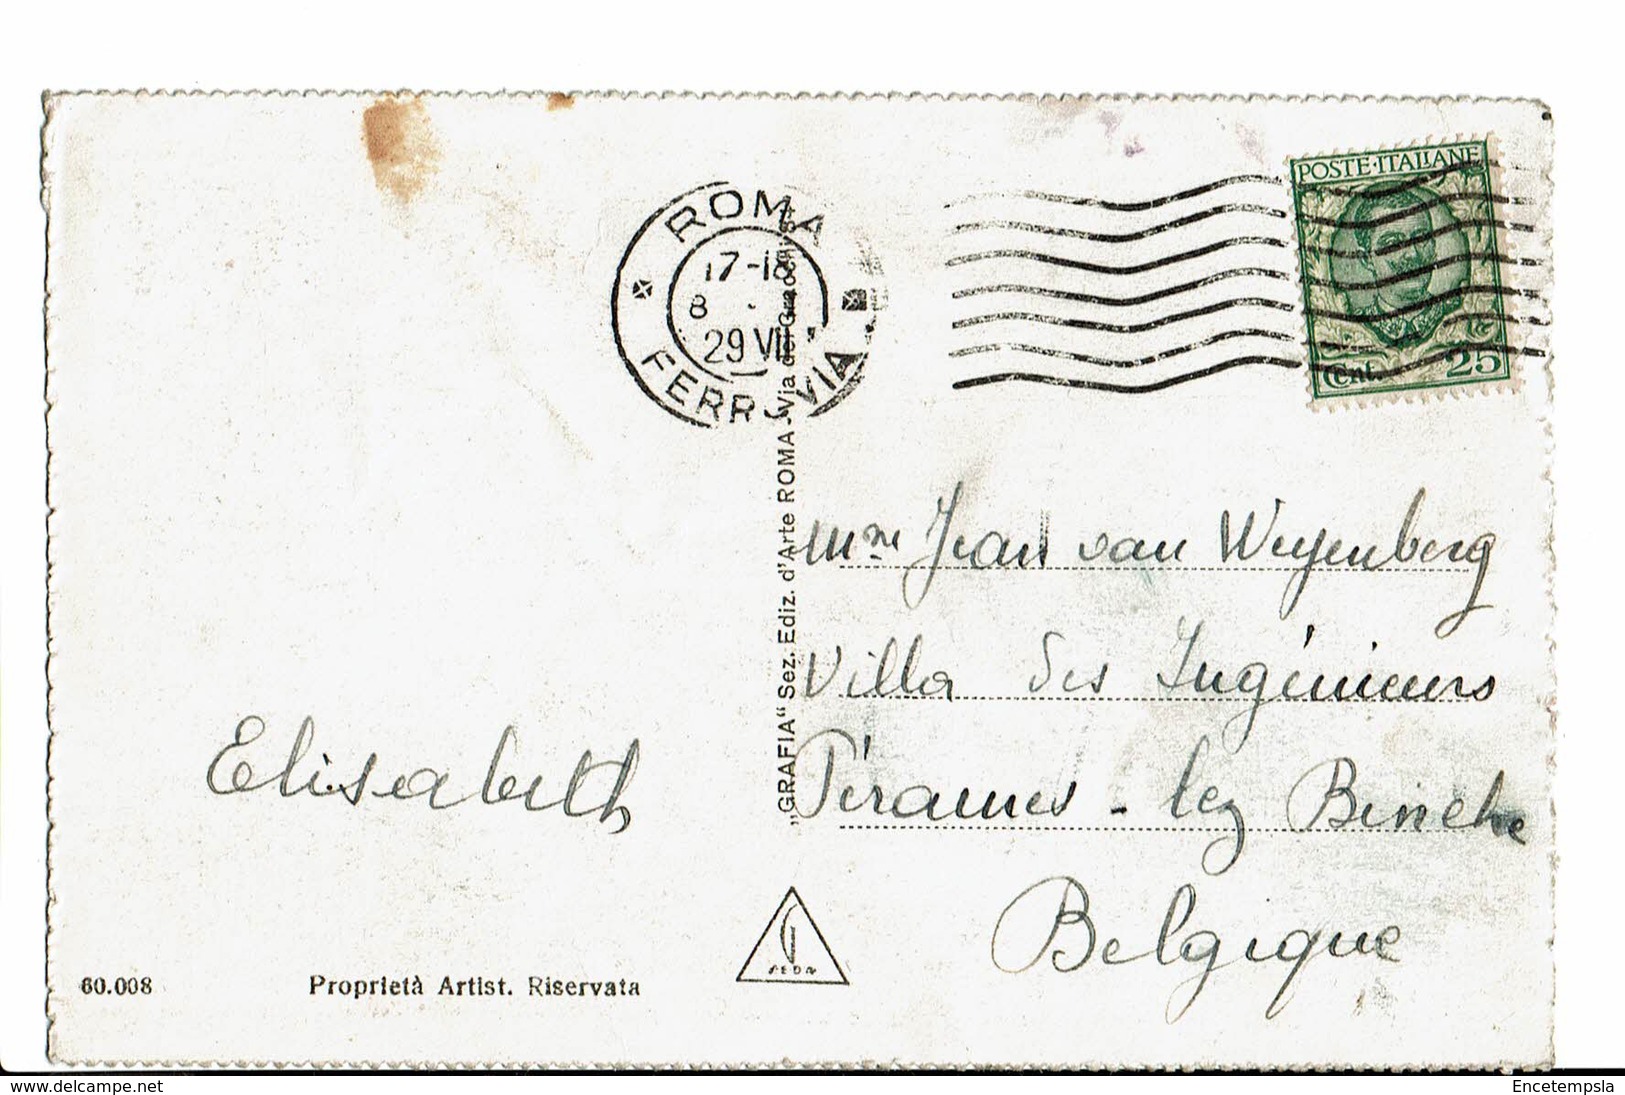 POSTE·ITALIANE
Cent. 25
ROMA
17-18
8
29 VII
FERROVIA
Mme Jean van Weyenberg
Villa des Ingénieurs
Péraunes - lez Binche
Belgique
Elisabeth
„GRAFIA“ Sez. Ediz. d'Arte ROMA - Via dei Gracchi
60.008
Proprietà Artist. Riservata
www.delcampe.net
Encetempsla